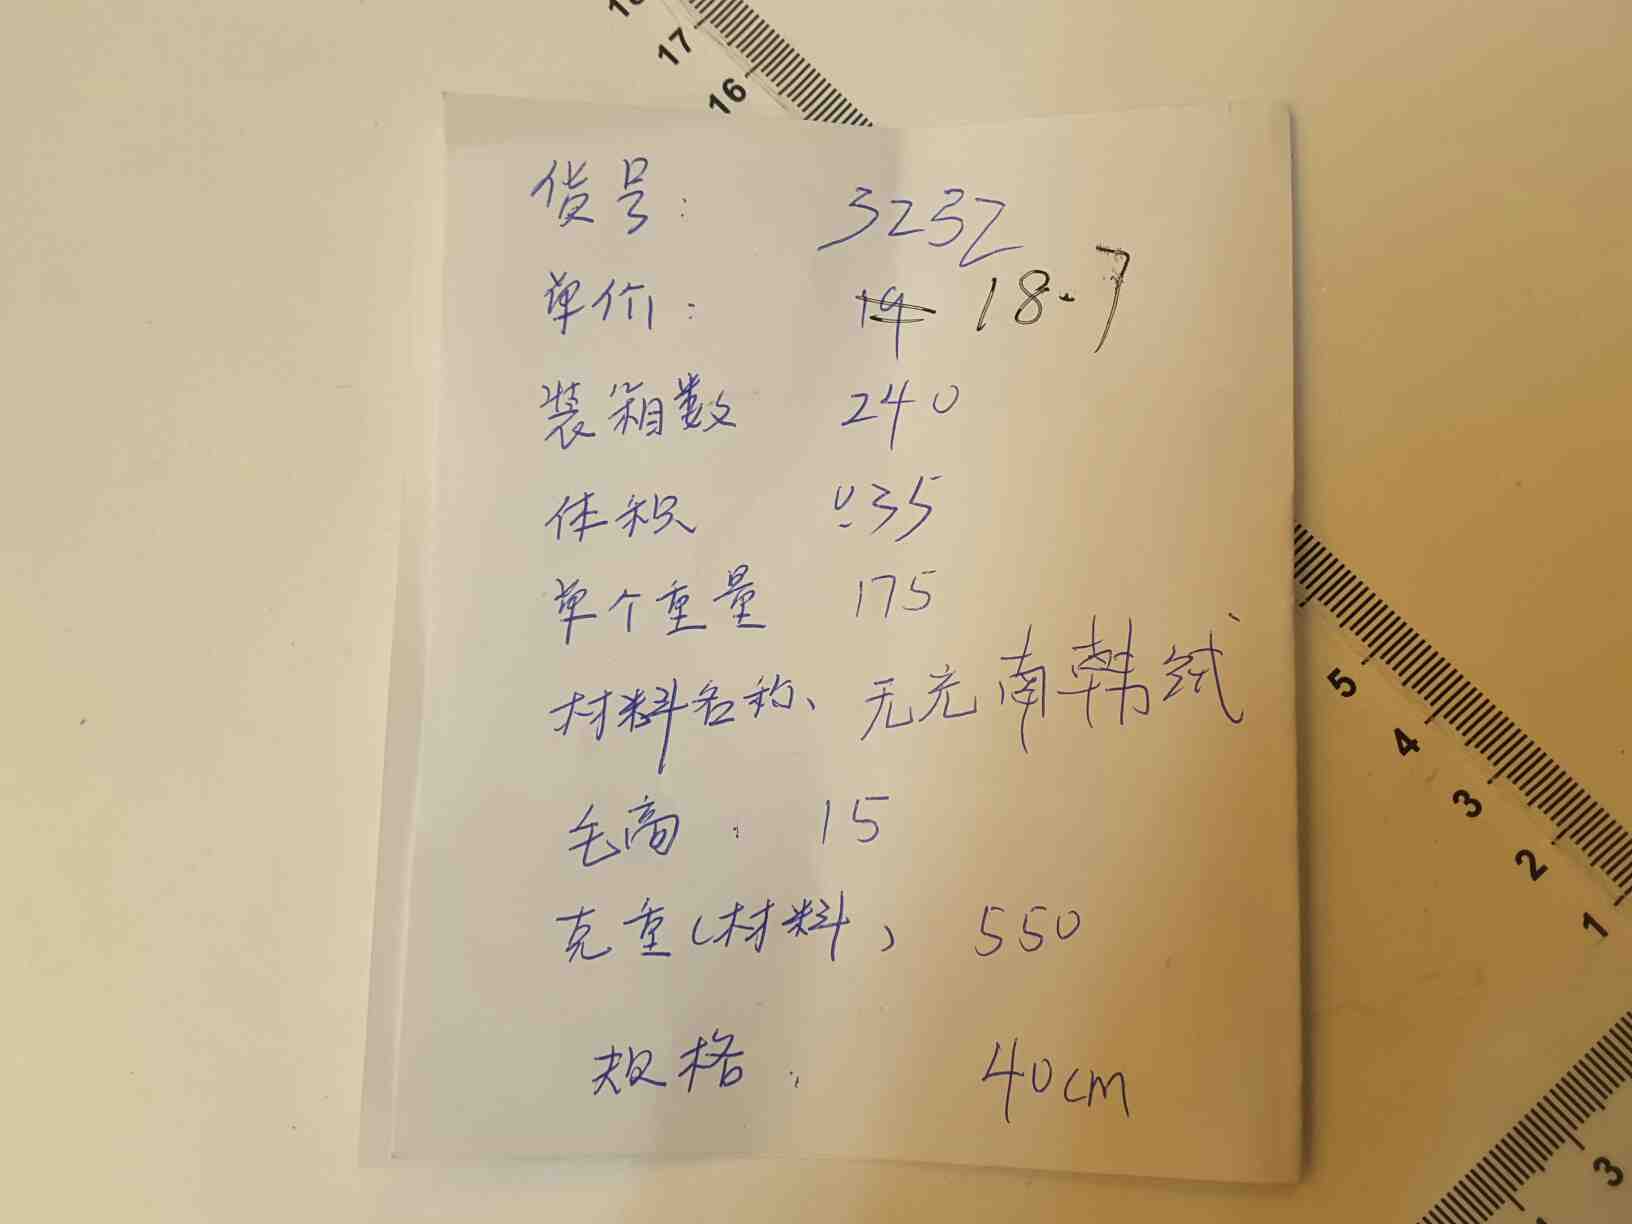 18
17
16
货号: 3232
单价: 19 18.7
装箱数 240
体积 0.35
单个重量 175
材料名称、无充南韩绒
毛高: 15
克重(材料) 550
规格: 40cm
5
4
3
2
1
3